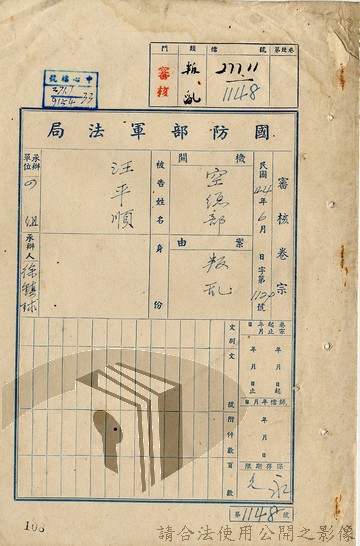 門 類 檔號 卷類第
審核 叛亂 277.11
1148
中心檔號
33
國防部軍法局
審核卷宗
民國44年6月 日字第 號
機關 空總部
案由 叛乱
被告姓名 汪平順
身份
承辦單位 四組
承辦人 徐鎮球
卷宗起止日期
年 月 日起
年 月 日止
歸檔年月日
年 月 日
保存期限
永久
文別 文號 附件數 頁數
第1148號
108
請合法使用公開之影像